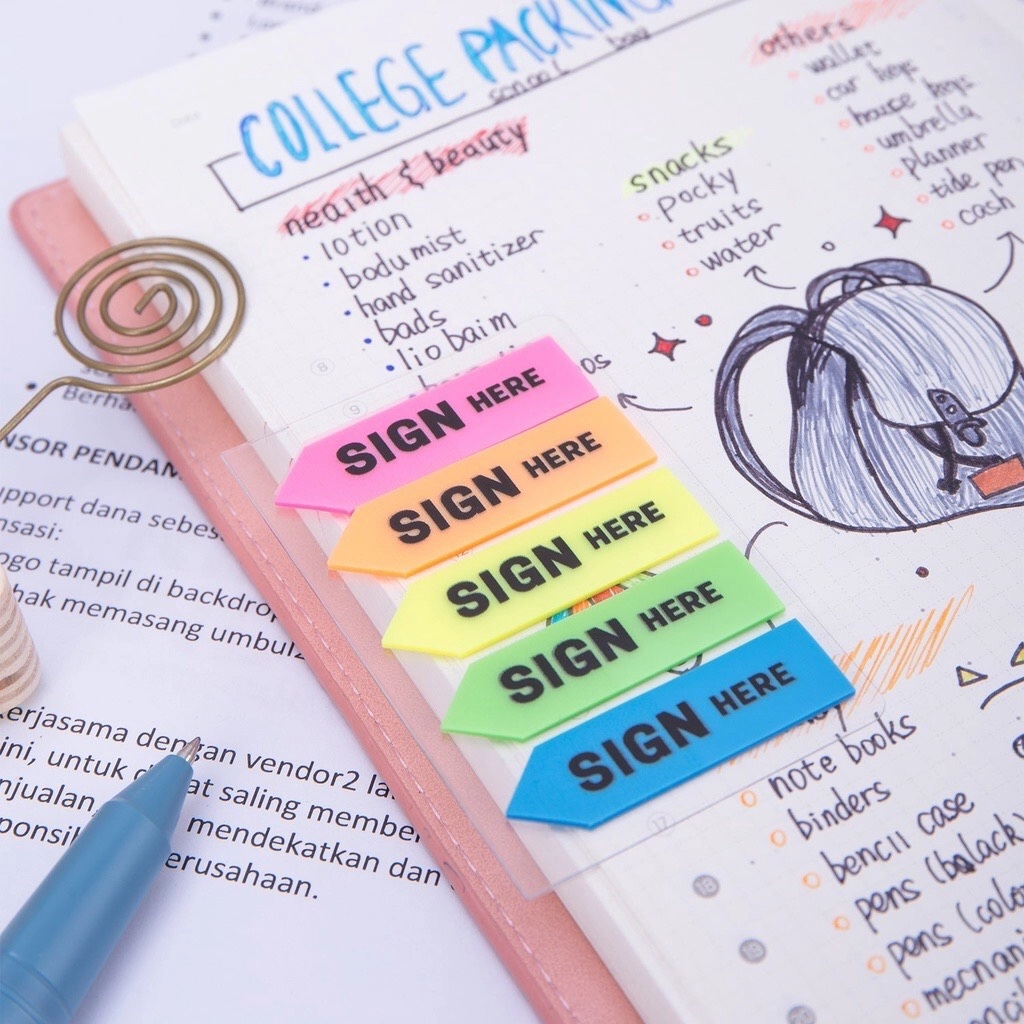 COLLEGE PACKING
bag
neaith & beauty
lotion
bodu mist
hand sanitizer
bads
lio baim
snacks
pocky
truits
water
others
wallet
car
house
umbrella
planner
tide pen
cash
8
9
SIGN HERE
SIGN HERE
SIGN HERE
SIGN HERE
SIGN HERE
17
18
19
note books
binders
bencil case
pens (balack)
pens (colo
mecnani
Berha
NSOR PENDAM
upport dana sebes
nsasi:
ogo tampil di backdrop
hak memasang umbul
kerjasama dengan vendor2 la
ini, untuk d at saling membe
njualan, mendekatkan dan
ponsi erusahaan.